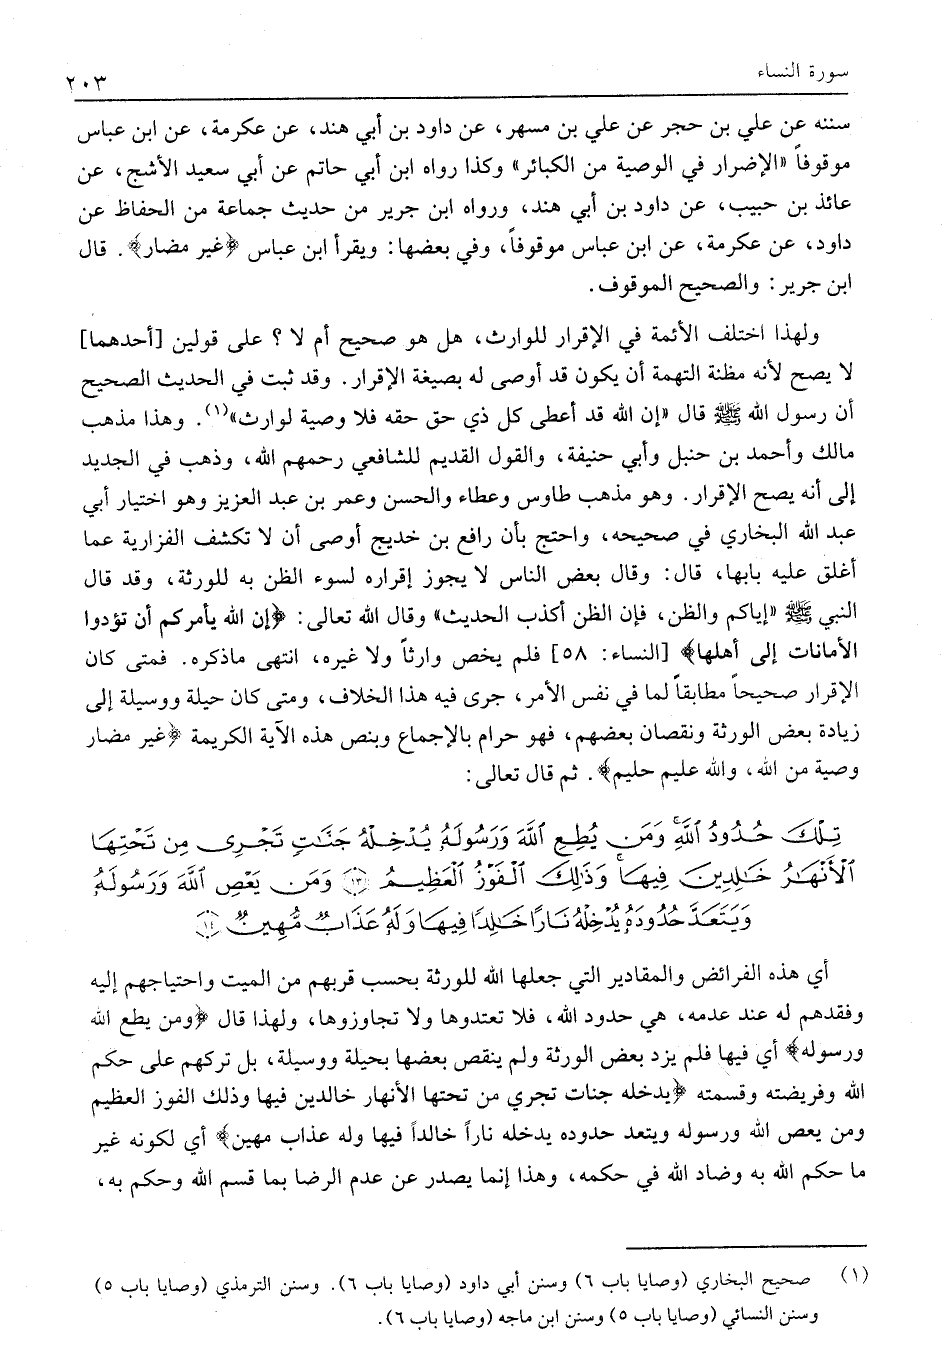 سورة النساء ٢٠٣
سننه عن علي بن حجر عن علي بن مسهر، عن داود بن أبي هند، عن عكرمة، عن ابن عباس
موقوفاً «الإضرار في الوصية من الكبائر» وكذا رواه ابن أبي حاتم عن أبي سعيد الأشج، عن
عائذ بن حبيب، عن داود بن أبي هند، ورواه ابن جرير من حديث جماعة من الحفاظ عن
داود، عن عكرمة، عن ابن عباس موقوفاً، وفي بعضها: ويقرأ ابن عباس ﴿غير مضار﴾. قال
ابن جرير: والصحيح الموقوف.
ولهذا اختلف الأئمة في الإقرار للوارث، هل هو صحيح أم لا؟ على قولين [أحدهما]
لا يصح لأنه مظنة التهمة أن يكون قد أوصى له بصيغة الإقرار. وقد ثبت في الحديث الصحيح
أن رسول الله ﷺ قال «إن الله قد أعطى كل ذي حق حقه فلا وصية لوارث»(١). وهذا مذهب
مالك وأحمد بن حنبل وأبي حنيفة، والقول القديم للشافعي رحمهم الله، وذهب في الجديد
إلى أنه يصح الإقرار. وهو مذهب طاوس وعطاء والحسن وعمر بن عبد العزيز وهو اختيار أبي
عبد الله البخاري في صحيحه، واحتج بأن رافع بن خديج أوصى أن لا تكشف الفزارية عما
أغلق عليه بابها، قال: وقال بعض الناس لا يجوز إقراره لسوء الظن به للورثة، وقد قال
النبي ﷺ «إياكم والظن، فإن الظن أكذب الحديث» وقال الله تعالى: ﴿إن الله يأمركم أن تؤدوا
الأمانات إلى أهلها﴾ [النساء: ٥٨] فلم يخص وارثاً ولا غيره، انتهى ماذكره. فمتى كان
الإقرار صحيحاً مطابقاً لما في نفس الأمر، جرى فيه هذا الخلاف، ومتى كان حيلة ووسيلة إلى
زيادة بعض الورثة ونقصان بعضهم، فهو حرام بالإجماع وبنص هذه الآية الكريمة ﴿غير مضار
وصية من الله، والله عليم حليم﴾. ثم قال تعالى:
تِلْكَ حُدُودُ ٱللَّهِ وَمَن يُطِعِ ٱللَّهَ وَرَسُولَهُ يُدْخِلْهُ جَنَّٰتٍ تَجْرِى مِن تَحْتِهَا
ٱلْأَنْهَٰرُ خَٰلِدِينَ فِيهَا وَذَٰلِكَ ٱلْفَوْزُ ٱلْعَظِيمُ ﴿١٣﴾ وَمَن يَعْصِ ٱللَّهَ وَرَسُولَهُ
وَيَتَعَدَّ حُدُودَهُ يُدْخِلْهُ نَارًا خَٰلِدًا فِيهَا وَلَهُ عَذَابٌ مُّهِينٌ ﴿١٤﴾
أي هذه الفرائض والمقادير التي جعلها الله للورثة بحسب قربهم من الميت واحتياجهم إليه
وفقدهم له عند عدمه، هي حدود الله، فلا تعتدوها ولا تجاوزوها، ولهذا قال ﴿ومن يطع الله
ورسوله﴾ أي فيها فلم يزد بعض الورثة ولم ينقص بعضها بحيلة ووسيلة، بل تركهم على حكم
الله وفريضته وقسمته ﴿يدخله جنات تجري من تحتها الأنهار خالدين فيها وذلك الفوز العظيم
ومن يعص الله ورسوله ويتعد حدوده يدخله ناراً خالداً فيها وله عذاب مهين﴾ أي لكونه غير
ما حكم الله به وضاد الله في حكمه، وهذا إنما يصدر عن عدم الرضا بما قسم الله وحكم به،
(١) صحيح البخاري (وصايا باب ٦) وسنن أبي داود (وصايا باب ٦). وسنن الترمذي (وصايا باب ٥)
وسنن النسائي (وصايا باب ٥) وسنن ابن ماجه (وصايا باب ٦).